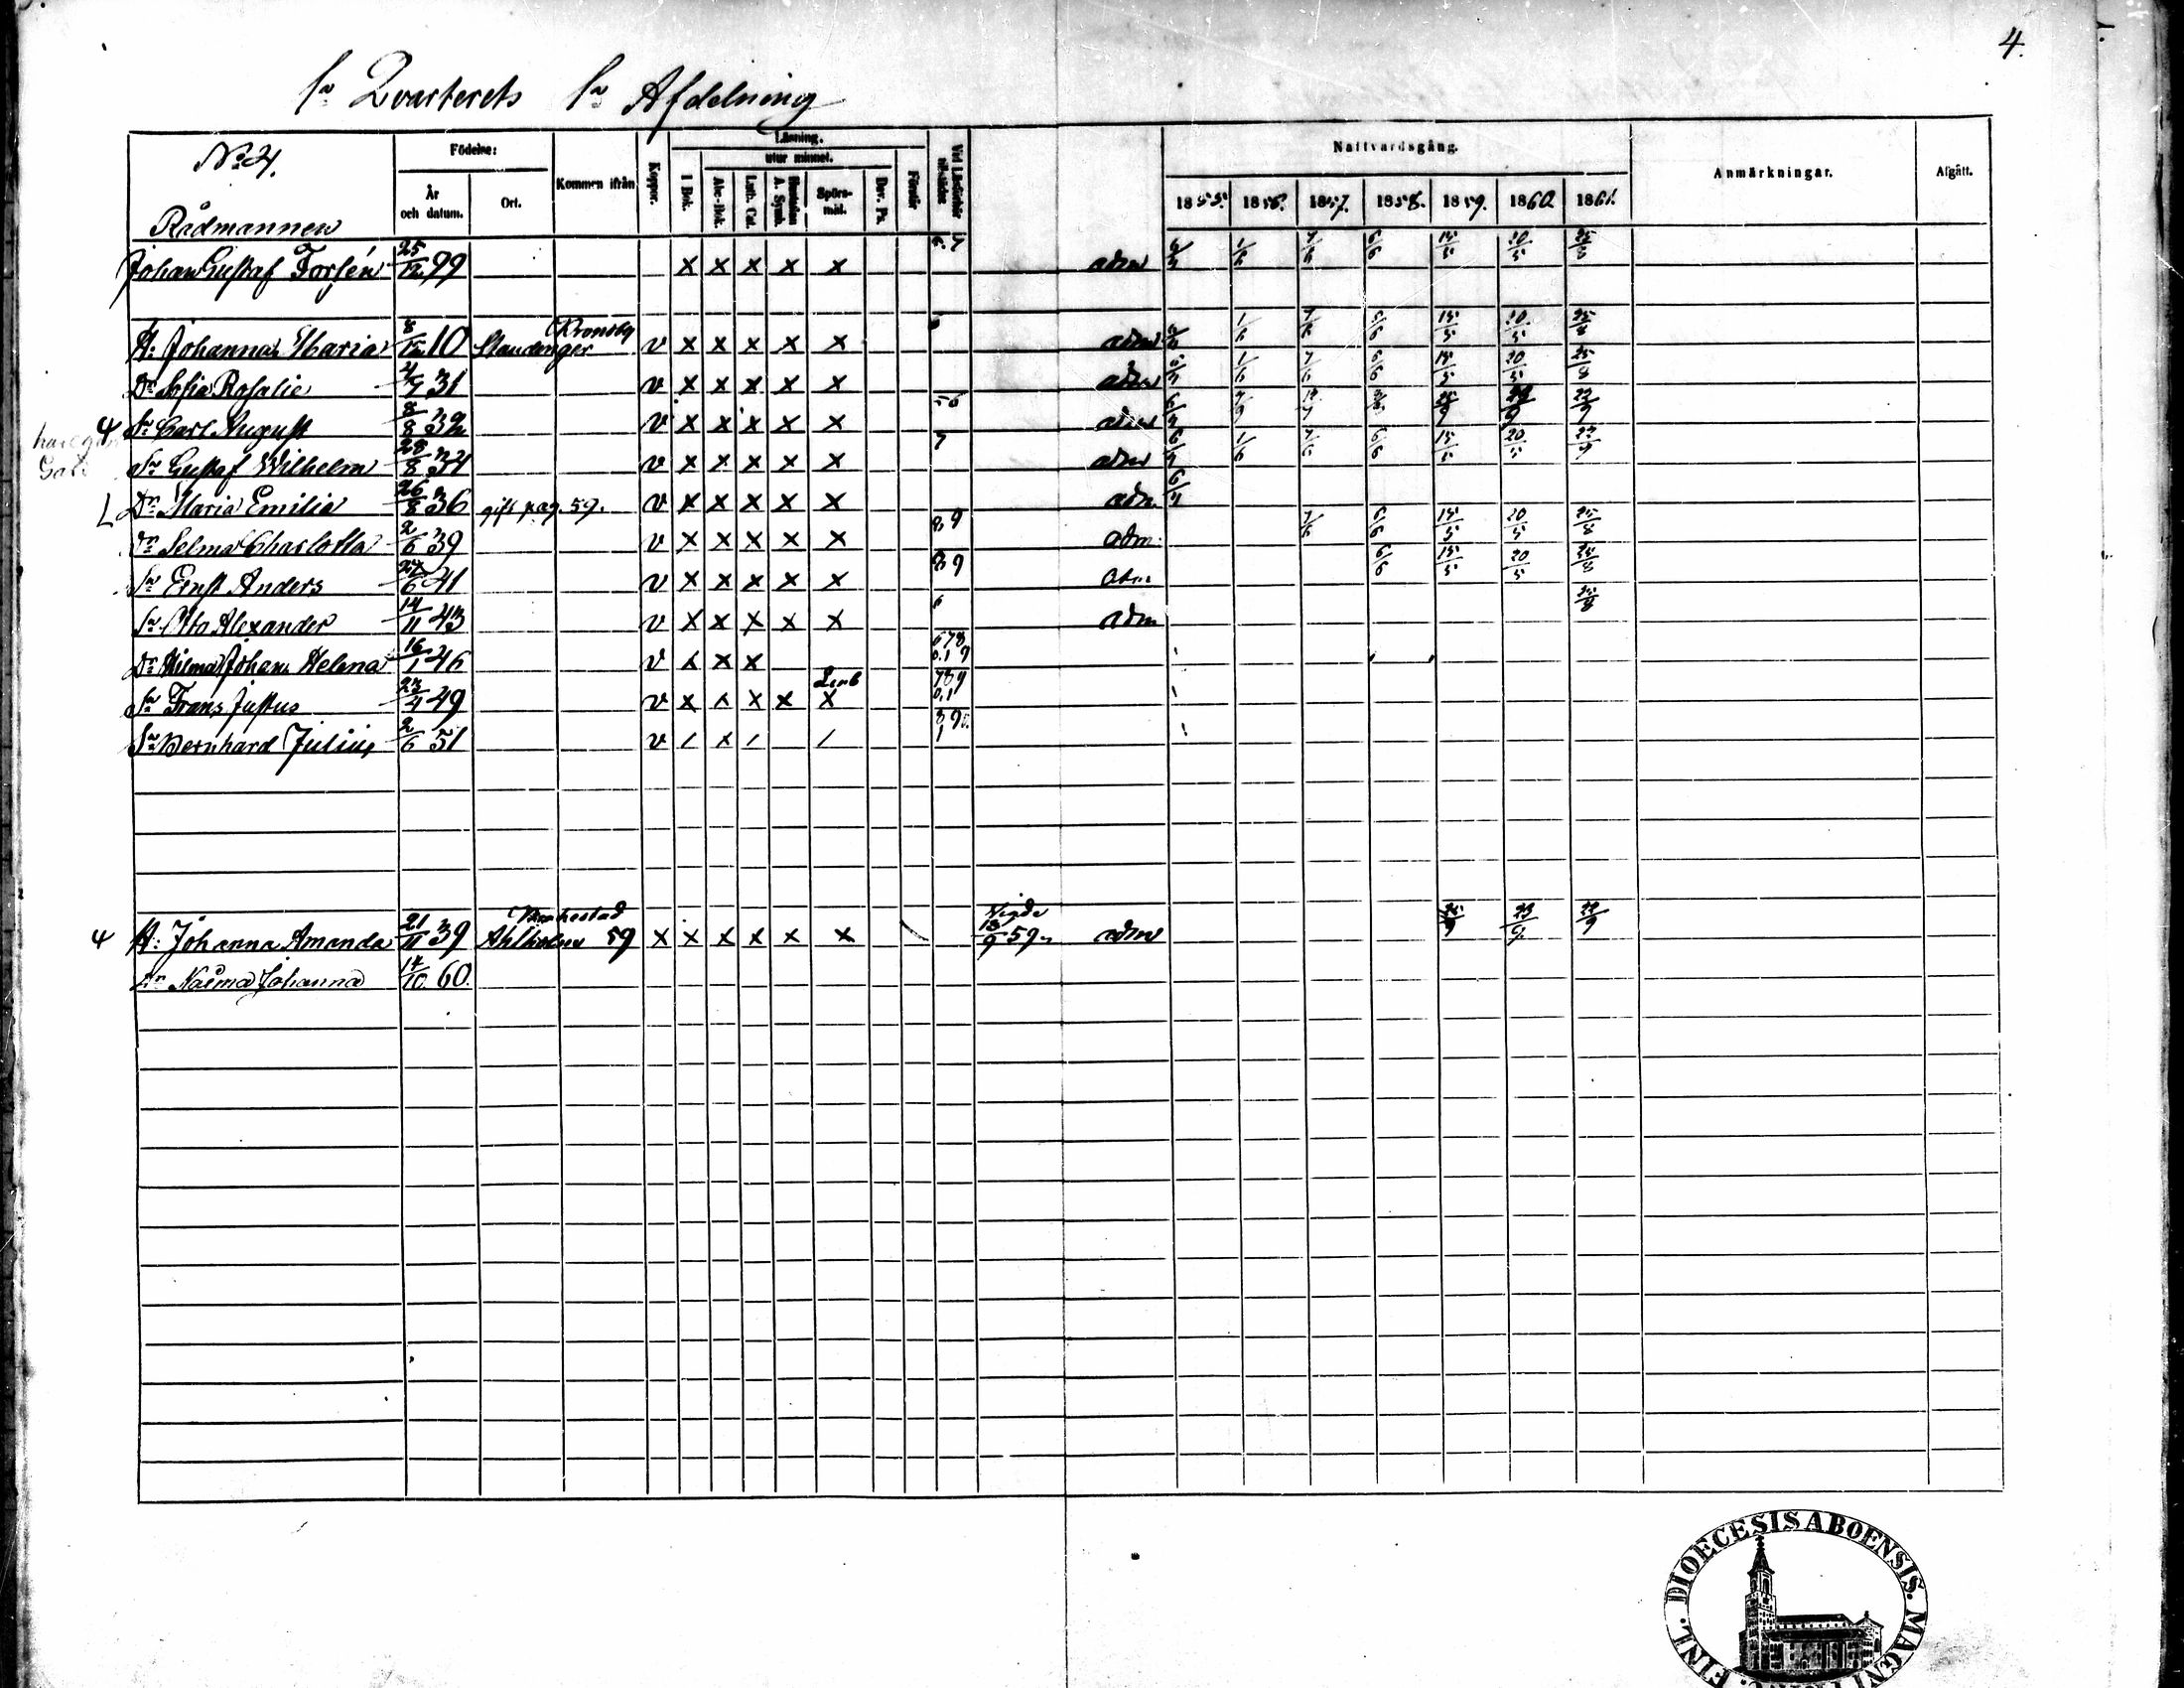 4.
1a Qvarterets 1a Afdelning
No 4.
Födelse:
År och datum.
Ort.
Kommen ifrån
Koppor.
Läsning.
I Bok.
utur minnet.
Abc-Bok.
Luth. Cat.
Hustaflan A. Symb.
Spörs-mål.
Dav. Ps.
Förstår
Nattvardsgång.
1855. 1856. 1857. 1858. 1859. 1860. 1861.
Anmärkningar.
Afgått.
Rådmannen
Johan Gustaf Forsén 25/12 99 x x x x x adm 1/6 7/6 6/6 15/5 20/5 25/8
H: Johanna Maria 8/12 10 Staudinger Kronoby v x x x x x adm 1/6 7/6 6/6 15/5 20/5 25/8
Dr Sofia Rosalie 4/7 31 v x x x x x adm 1/6 7/6 6/6 15/5 20/5 25/8
4 Sn Carl August 8/8 32 v x x x x x adm 22/9
Sn Gustaf Wilhelm 28/8 34 v x x x x x adm 1/6 7/6 6/6 15/5 20/5 22/9
L Dr Maria Emilia 26/8 36 gift pag. 59. v x x x x x adm.
Dr Selma Charlotta 2/6 39 v x x x x x 89 adm. 7/6 6/6 15/5 20/5 25/8
Sn Ernst Anders 24/6 41 v x x x x x 89 adm 6/6 15/5 20/5 25/8
Sn Otto Alexander 14/11 43 v x x x x x 6 adm 25/8
Dr Hilma Johan. Helena 16/1 46 v x x x 678 0.1 9
Sn Frans Justus 23/4 49 v x x x x x 789 0.1
Sn Bernhard Julius 2/6 51 v / x / / 890. 1
4 H: Johanna Amanda 21/11 39 Ahlholm 59 x x x x x x Vigde 18/9 59 adm 25/9 23/9 22/9
Dr Naëma Johanna 14/10 60.
FINL. DIOECESIS ABOENSIS. MAGNI